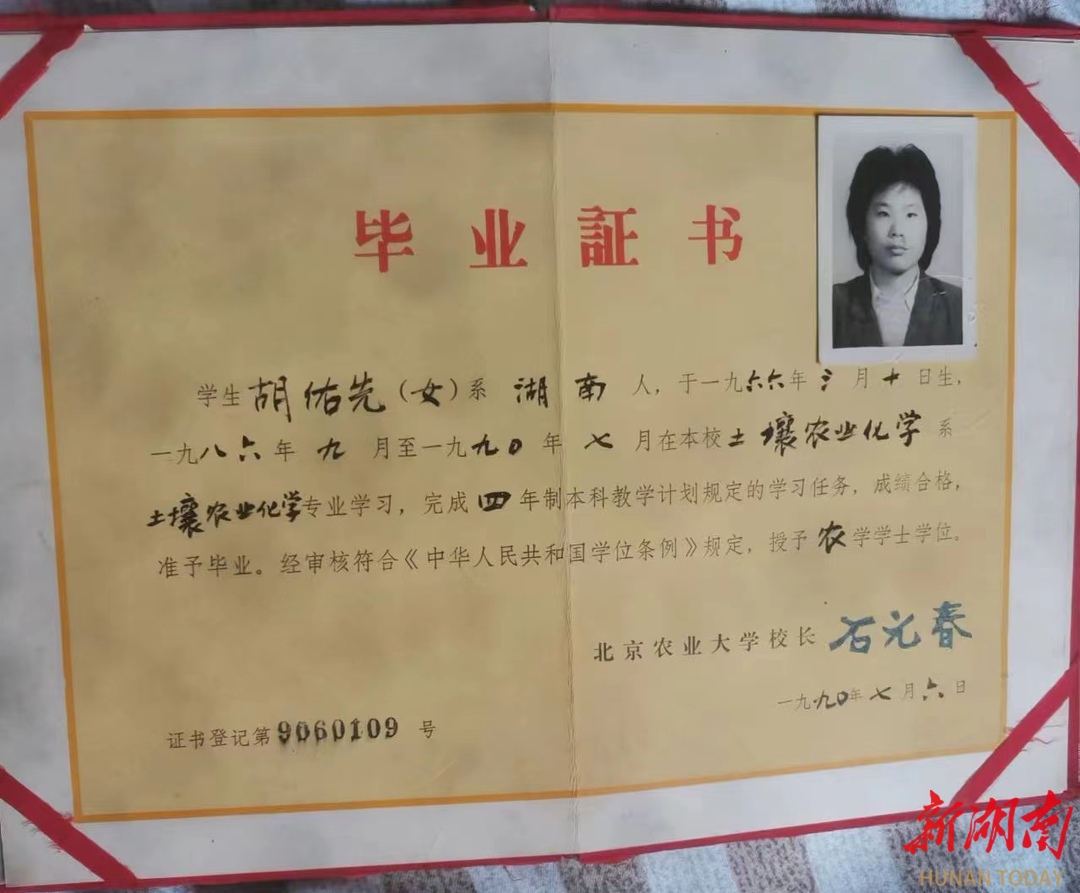 毕业証书
学生胡佑先(女)系 湖南 人，于一九六六年 月十日生，
一九八六年 九 月至一九九〇年 七 月在本校土壤农业化学系
土壤农业化学专业学习，完成四年制本科教学计划规定的学习任务，成绩合格，
准予毕业。经审核符合《中华人民共和国学位条例》规定，授予农学学士学位。
北京农业大学校长 石元春
一九九〇年七月六日
证书登记第9060109号
新湖南
HUNAN TODAY